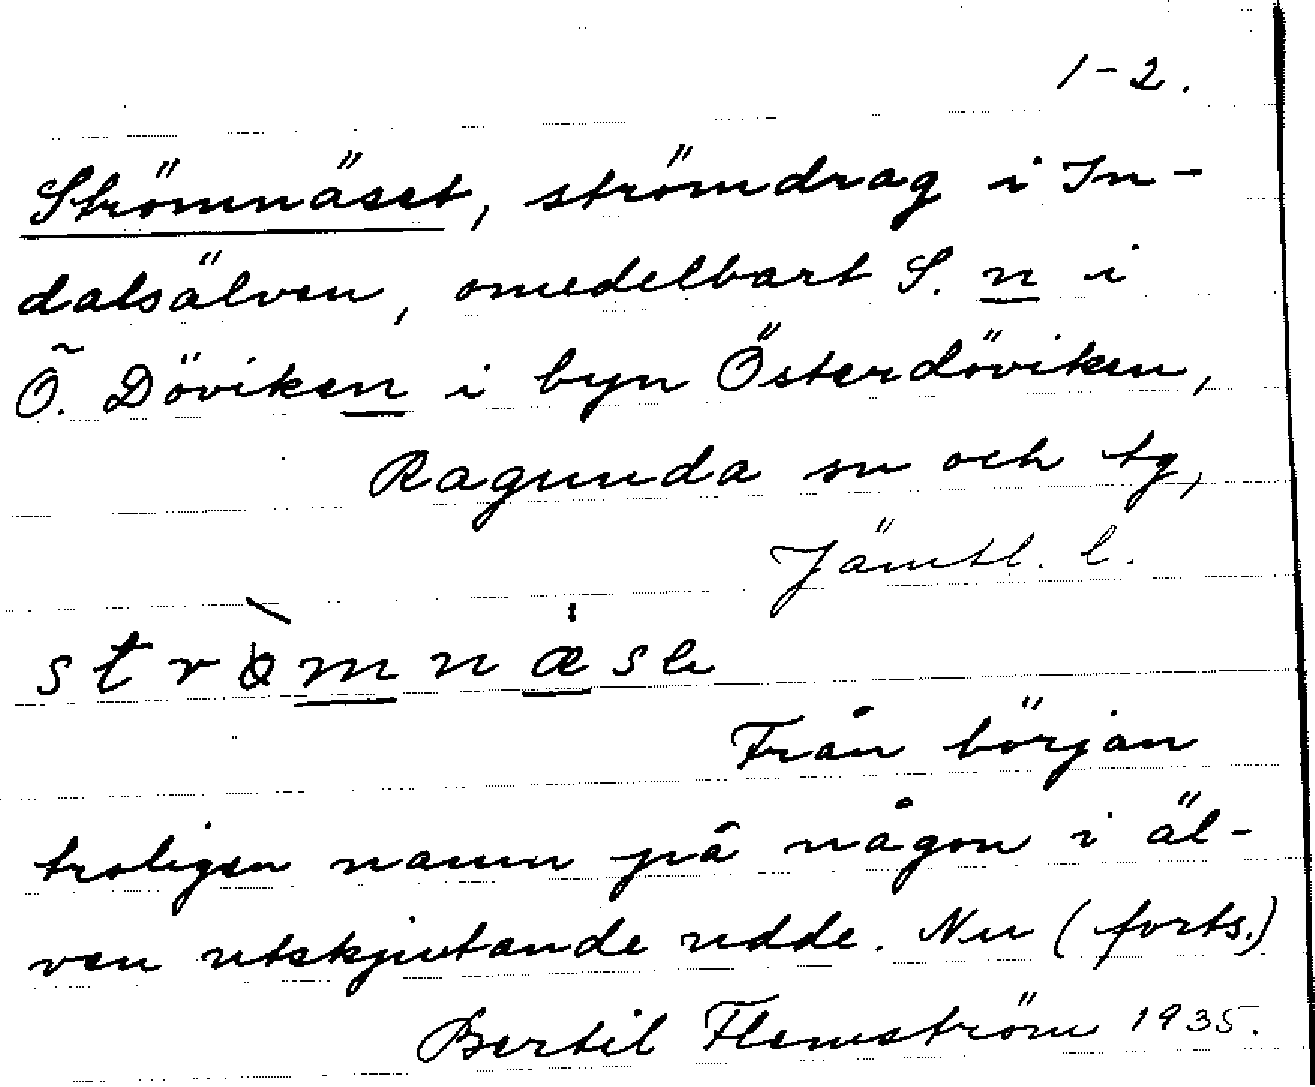 1-2.
Strömnäset, strömdrag i In-
dalsälven, omedelbart S. n i
Õ. Döviken i byn Österdöviken,
Ragunda sn och tg,
Jämtl. l.
strömnæsə
Från början
troligen namn på någon i äl-
ven utskjutande udde. Nu (forts.)
Bertil Flemström 1935.